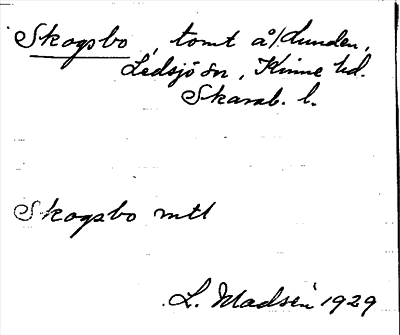 Skogsbo, tomt å/Lunden,
Ledsjö sn, Kinne hd.
Skarab. l.
Skogsbo mtl
L. Madsén 1929